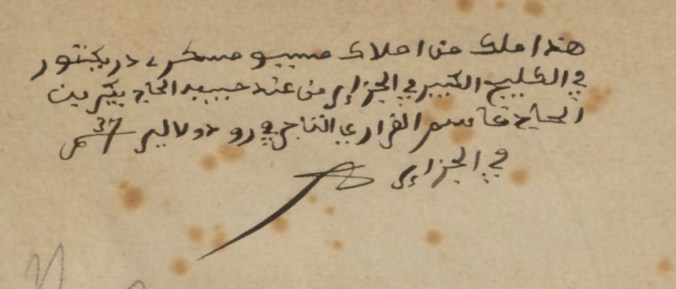 هذا ملك من املاك مسيو مسكرے دريكتور
في الكليج الكبير في الجزاير من عند حبيبه الحاج بكير بن
الحاج قاسم القراري التاجر في رو دولالير 37
في الجزاير